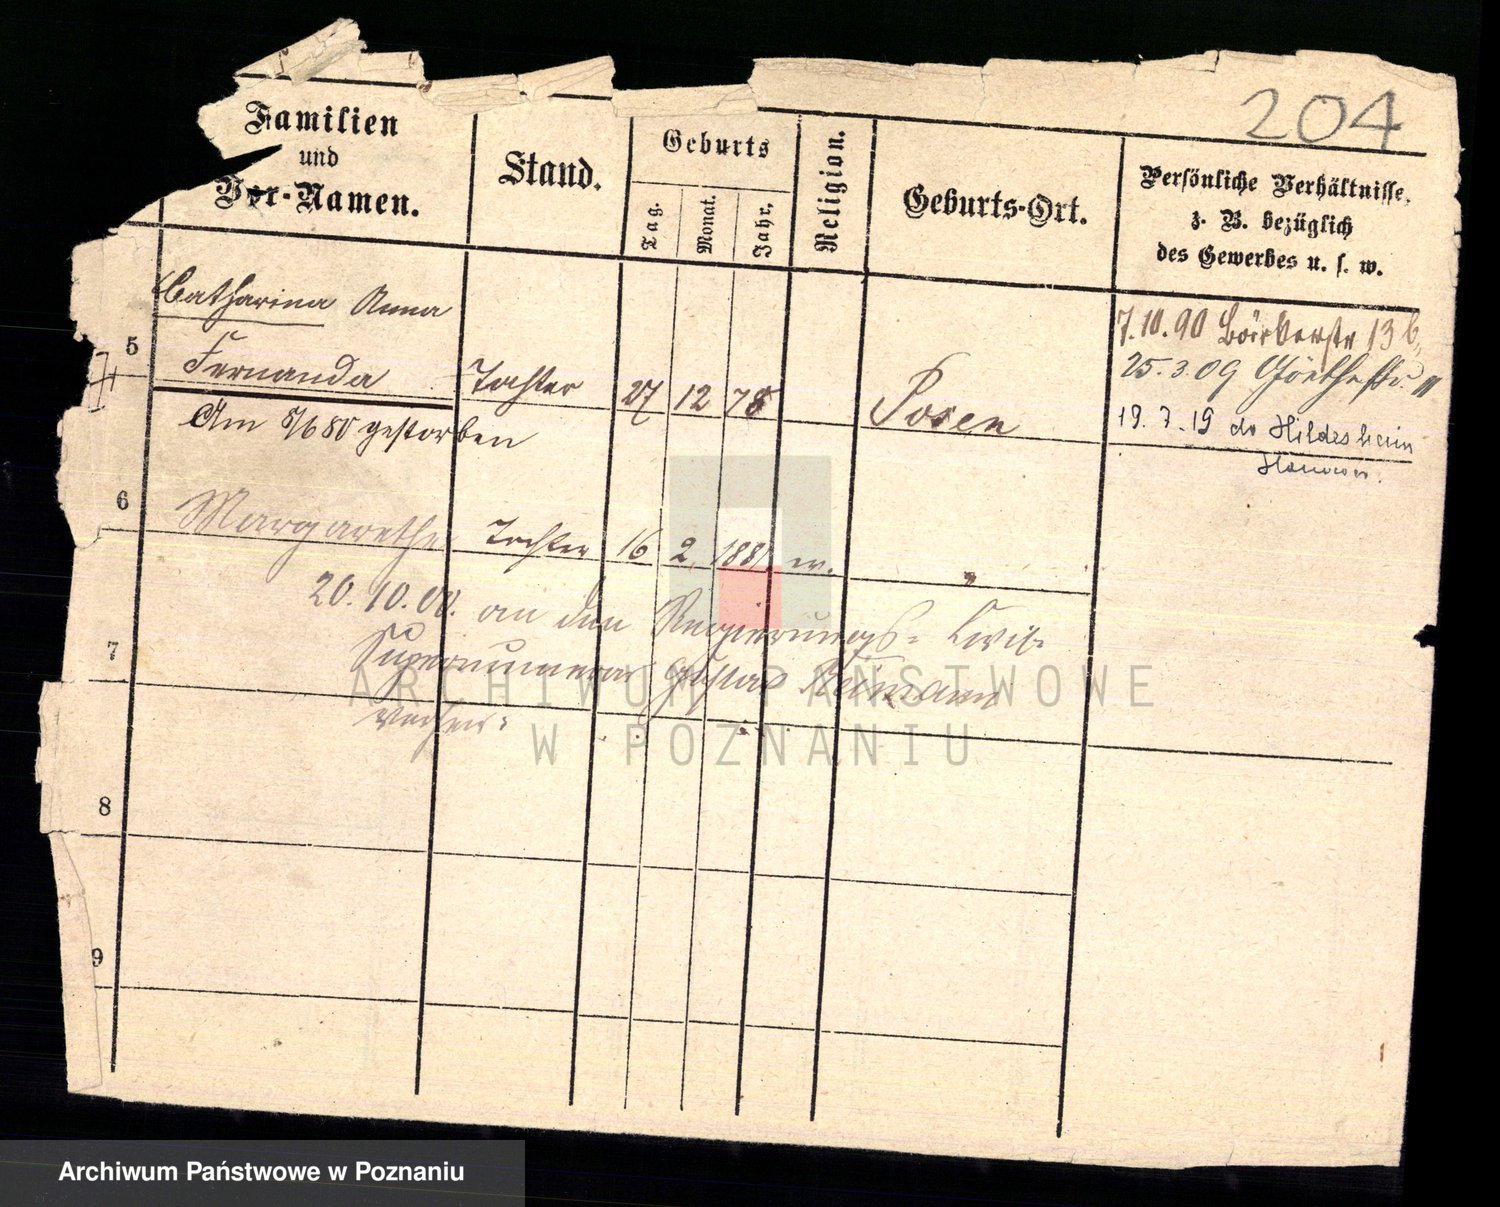 204
Familien
und
Vor-Namen.
Stand.
Geburts
Tag.
Monat.
Jahr.
Religion.
Geburts-Ort.
Persönliche Verhältnisse,
z. B. bezüglich
des Gewerbes u. s. w.
Catharina Anna
5 Fernanda Tochter 27 12 78 Posen
Am 8/6 80 gestorben
7.10.90 Bäckerstr 13 b,
25.3.09 Göthestr. 11
19.7.19 do Hildesheim
Hannover.
6 Margarethe Tochter 16 2. 1881 ev. "
20.10.00. an den Regierungs-Civil-
7 Supernumerar Gustav Reimann
8
9
ARCHIWUM PAŃSTWOWE
W POZNANIU
Archiwum Państwowe w Poznaniu